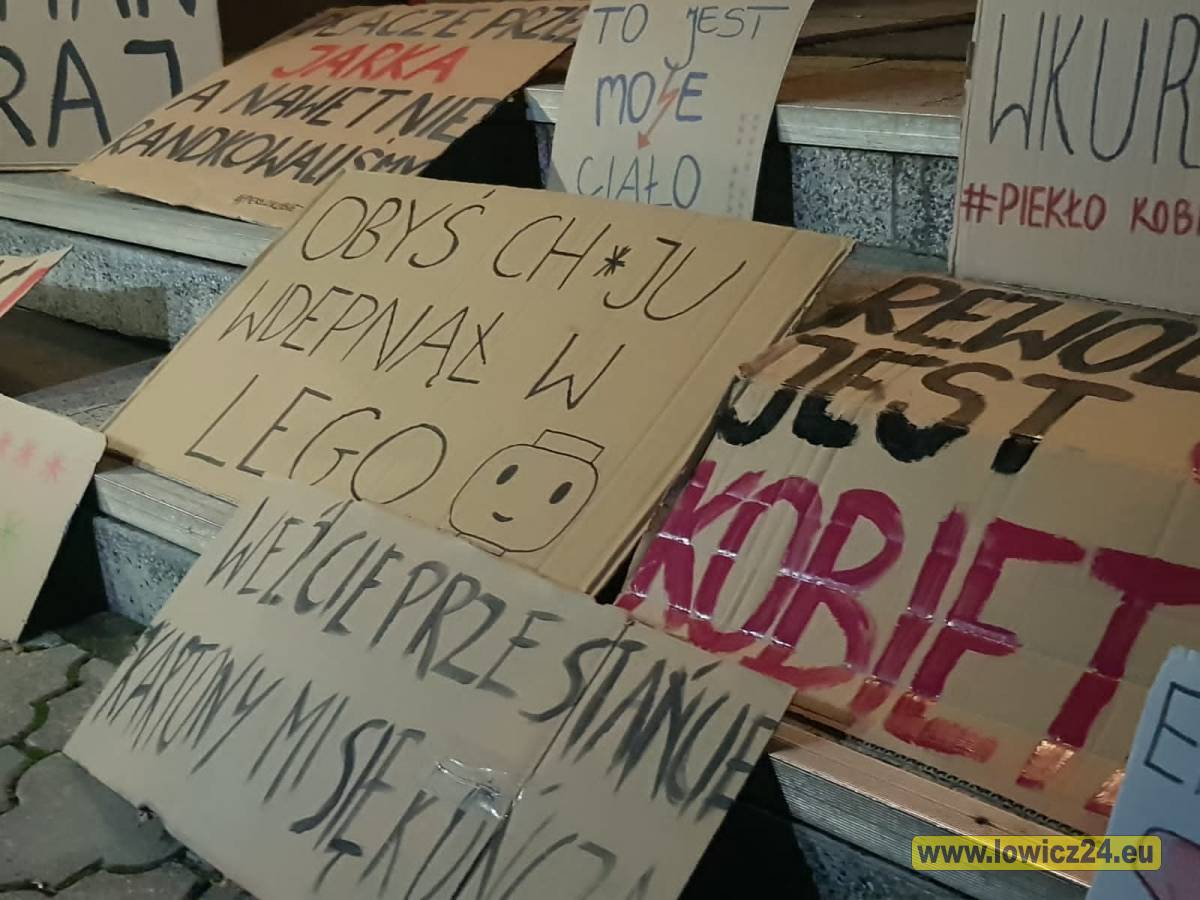 RAJ
PŁACZĘ PRZEZ
JARKA
A NAWET NIE
RANDKOWALIŚMY
TO JEST
MOJE
CIAŁO
WKUR
#PIEKŁO KOBI
OBYŚ CH*JU
WDEPNĄŁ W
LEGO
REWOL
JEST
KOBIETĄ
WEŹCIE PRZESTAŃCIE
KARTONY MI SIĘ KOŃCZĄ
www.lowicz24.eu